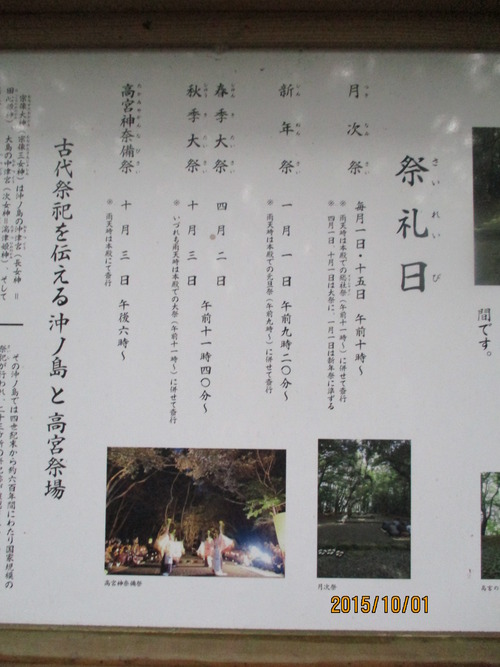 間です。
祭礼日
さいれいび
月次祭
つきなみさい
毎月一日・十五日 午前十時～
※ 雨天時は本殿での総社祭（午前十一時～）に併せて斎行
※ 四月一日、十月一日は大祭に、一月一日は新年祭に準ずる
新年祭
一月一日 午前九時二〇分～
※ 雨天時は本殿での元旦祭（午前九時～）に併せて斎行
春季大祭
四月二日
秋季大祭
十月三日
午前十一時四〇分～
※ いづれも雨天時は本殿での大祭（午前十一時～）に併せて斎行
高宮神奈備祭
十月三日 午後六時～
※ 雨天時は本殿にて斎行
古代祭祀を伝える沖ノ島と高宮祭場
宗像大神（宗像三女神）は沖ノ島の沖津宮（長女神＝
大島の中津宮（次女神＝湍津姫神）、そして
その沖ノ島では四世紀末から約六百年間にわたり国家規模の
祭祀が行われ、二十三カ所の
高宮神奈備祭
月次祭
高宮の
2015/10/01